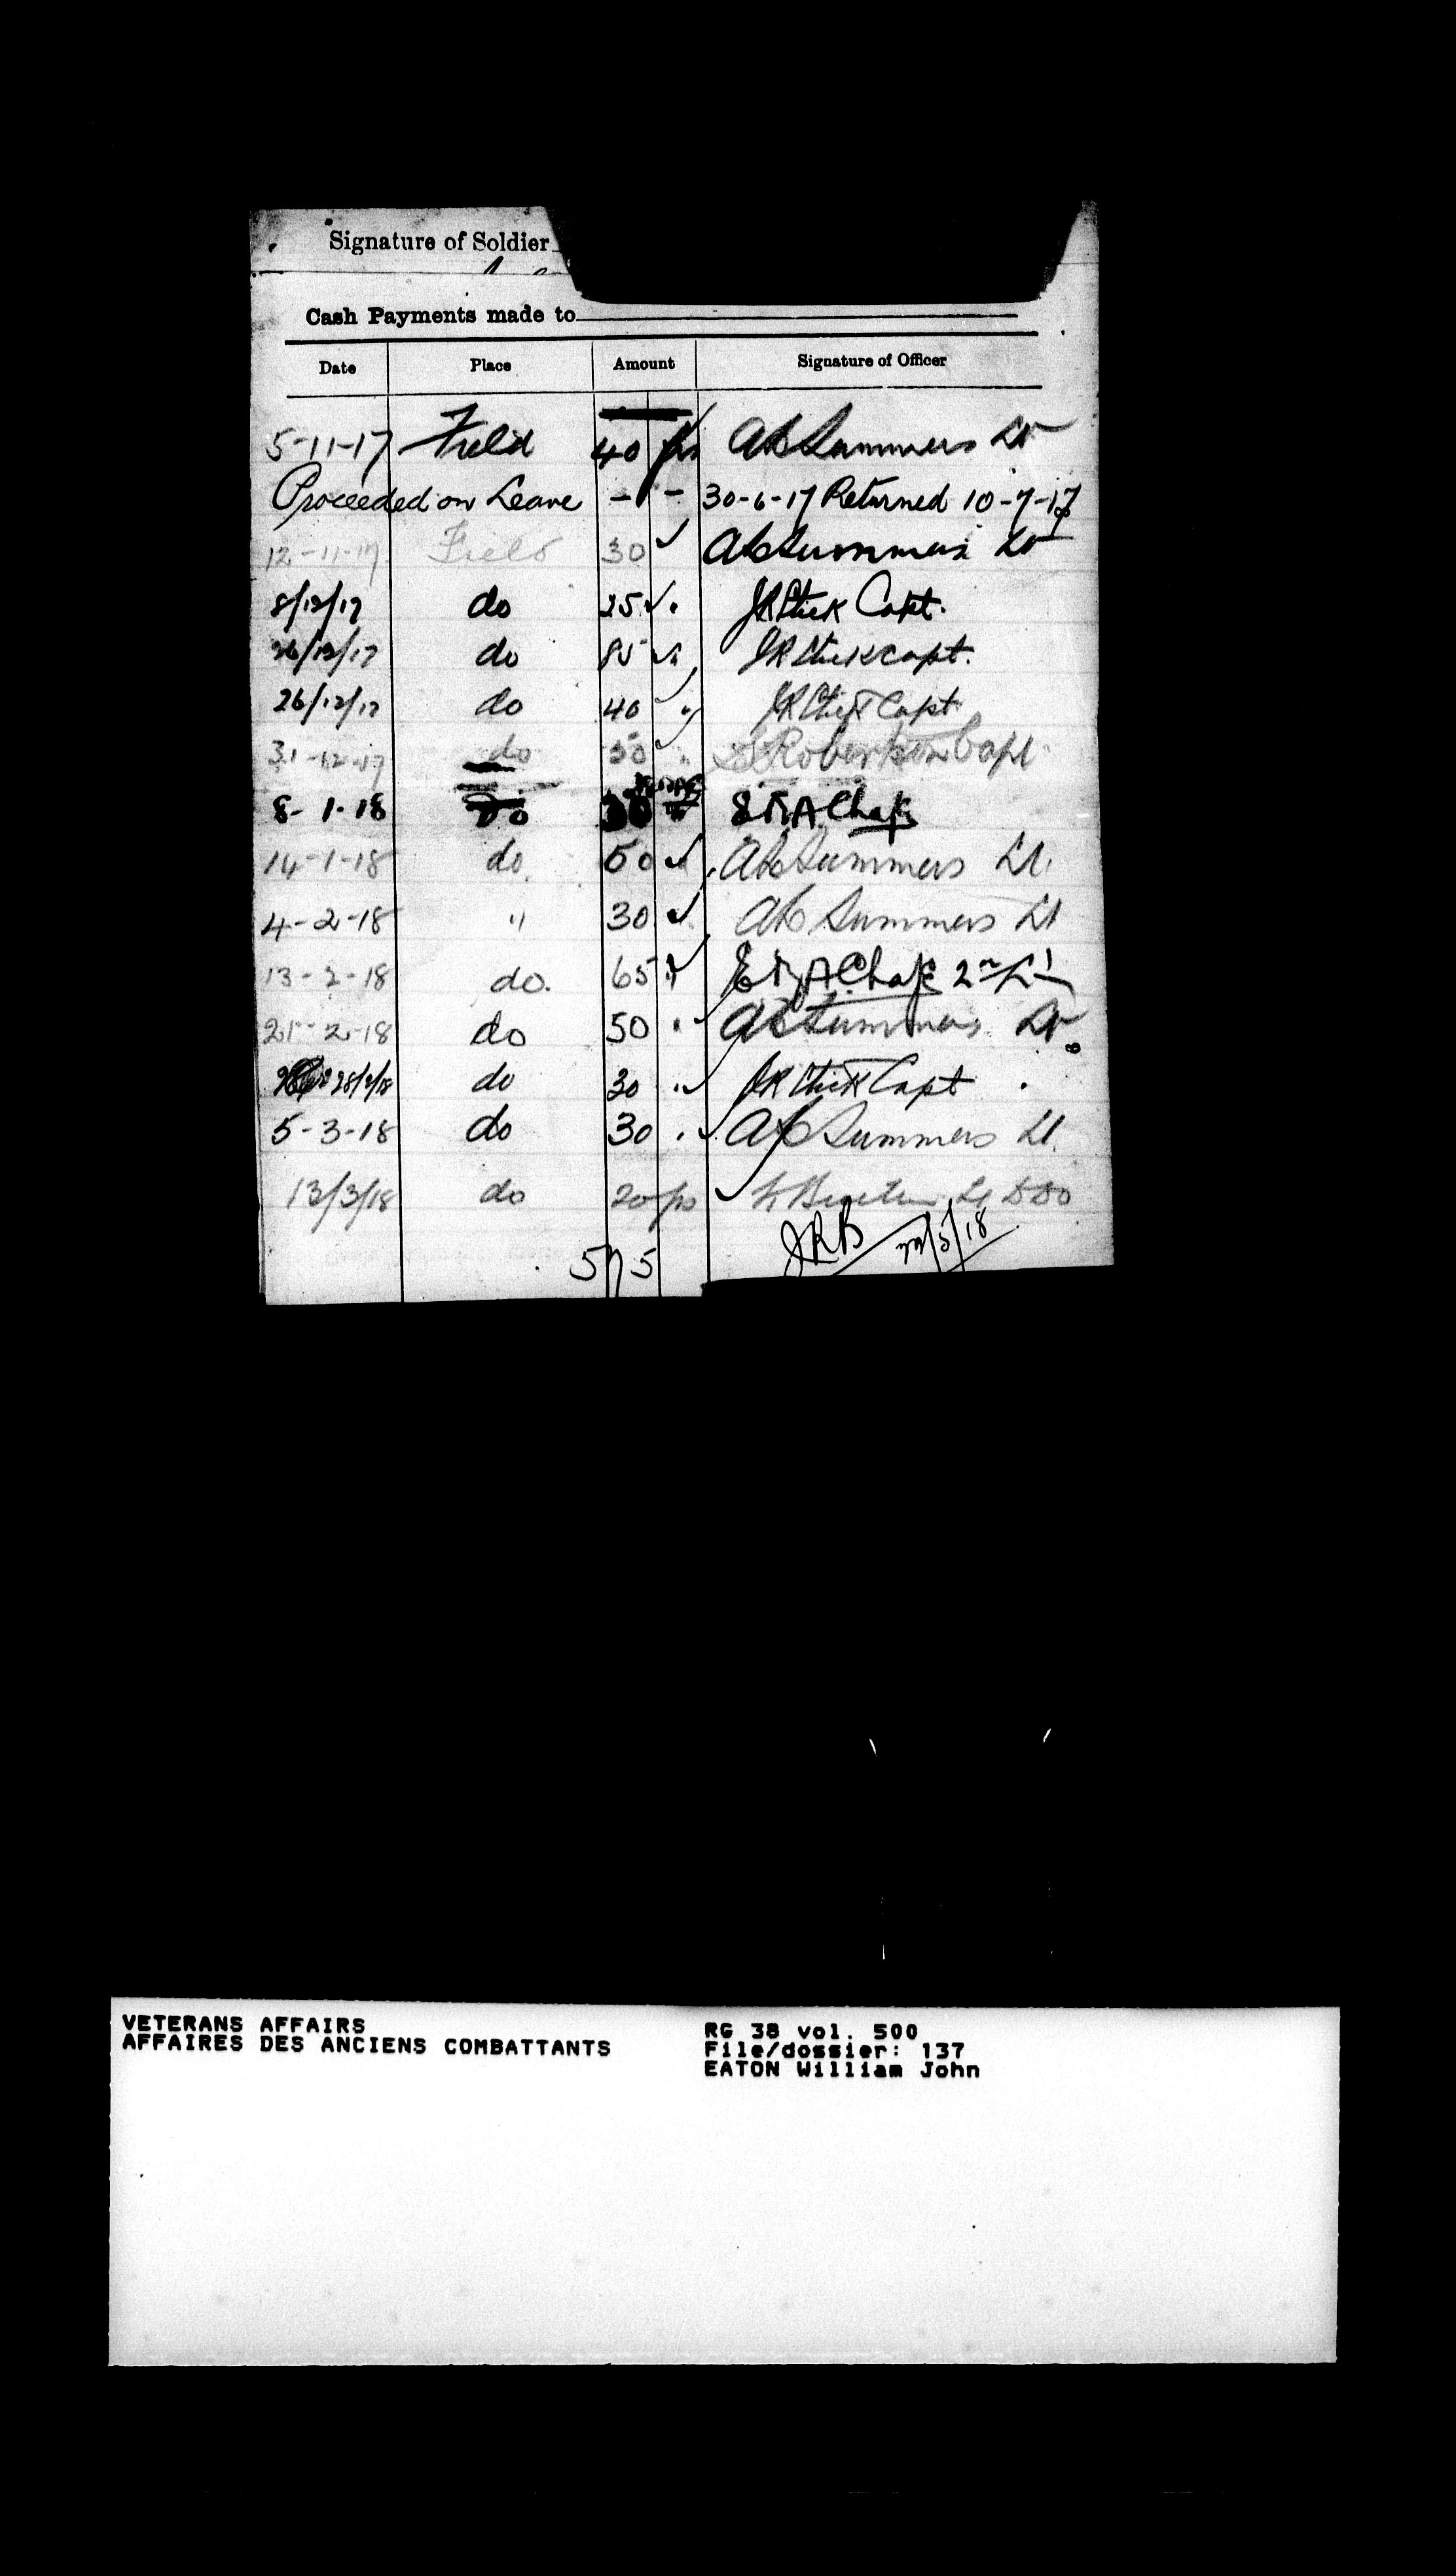 Signature of Soldier
Cash Payments made to
Date Place Amount Signature of Officer
5-11-17 Field 40 frs Summers Lt
Proceeded on Leave - - 30-6-17 Returned 10-7-17
12-11-17 Field 30 Summers Lt
8/12/17 do 25 " Capt.
26/12/17 do 85 " Capt.
26/12/17 do 40 " Capt
31-12-17 do 50 " Robertson Capt
8-1-18 do
14-1-18 do 50 " Summers Lt.
4-2-18 " 30 " Summers Lt
13-2-18 do. 65 " 2nd Lt
21-2-18 do 50 " Summers Lt
28/2/18 do 30 " Capt
5-3-18 do 30 " Summers Lt.
13/3/18 do 20 frs
575 JRB /5/18
VETERANS AFFAIRS
AFFAIRES DES ANCIENS COMBATTANTS
RG 38 vol. 500
File/dossier: 137
EATON William John